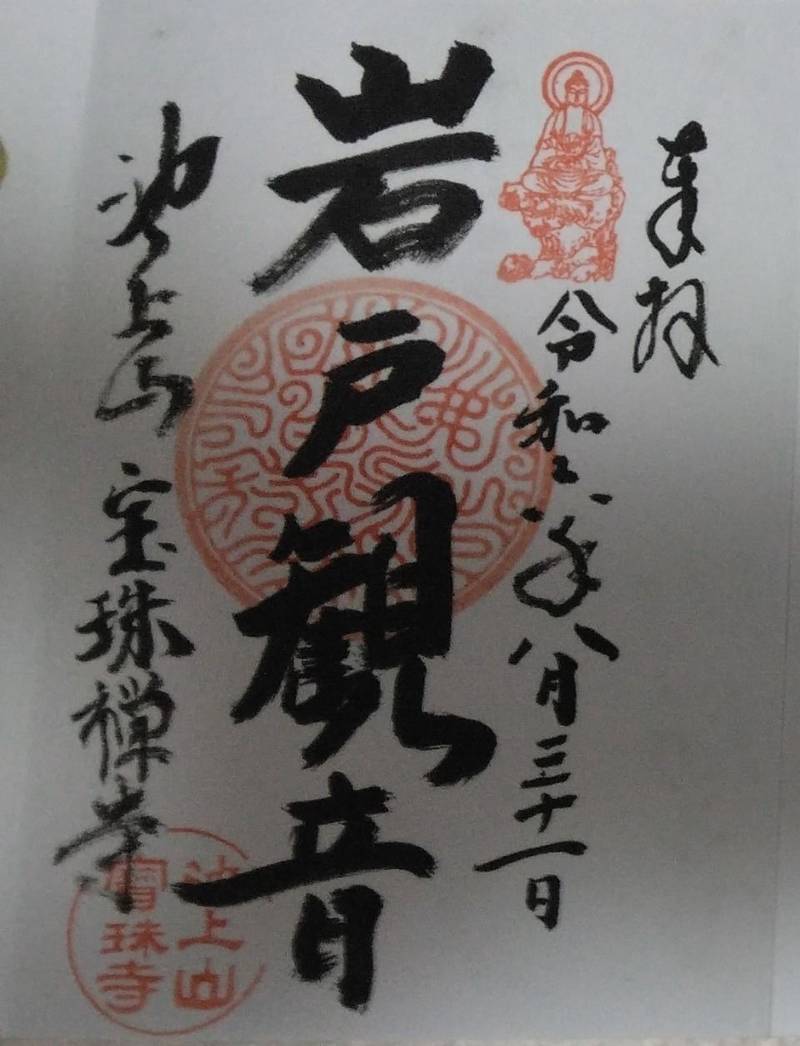 奉拝
令和六年八月三十一日
岩戸観音
池上山 宝珠禅寺
池上山
寳珠寺